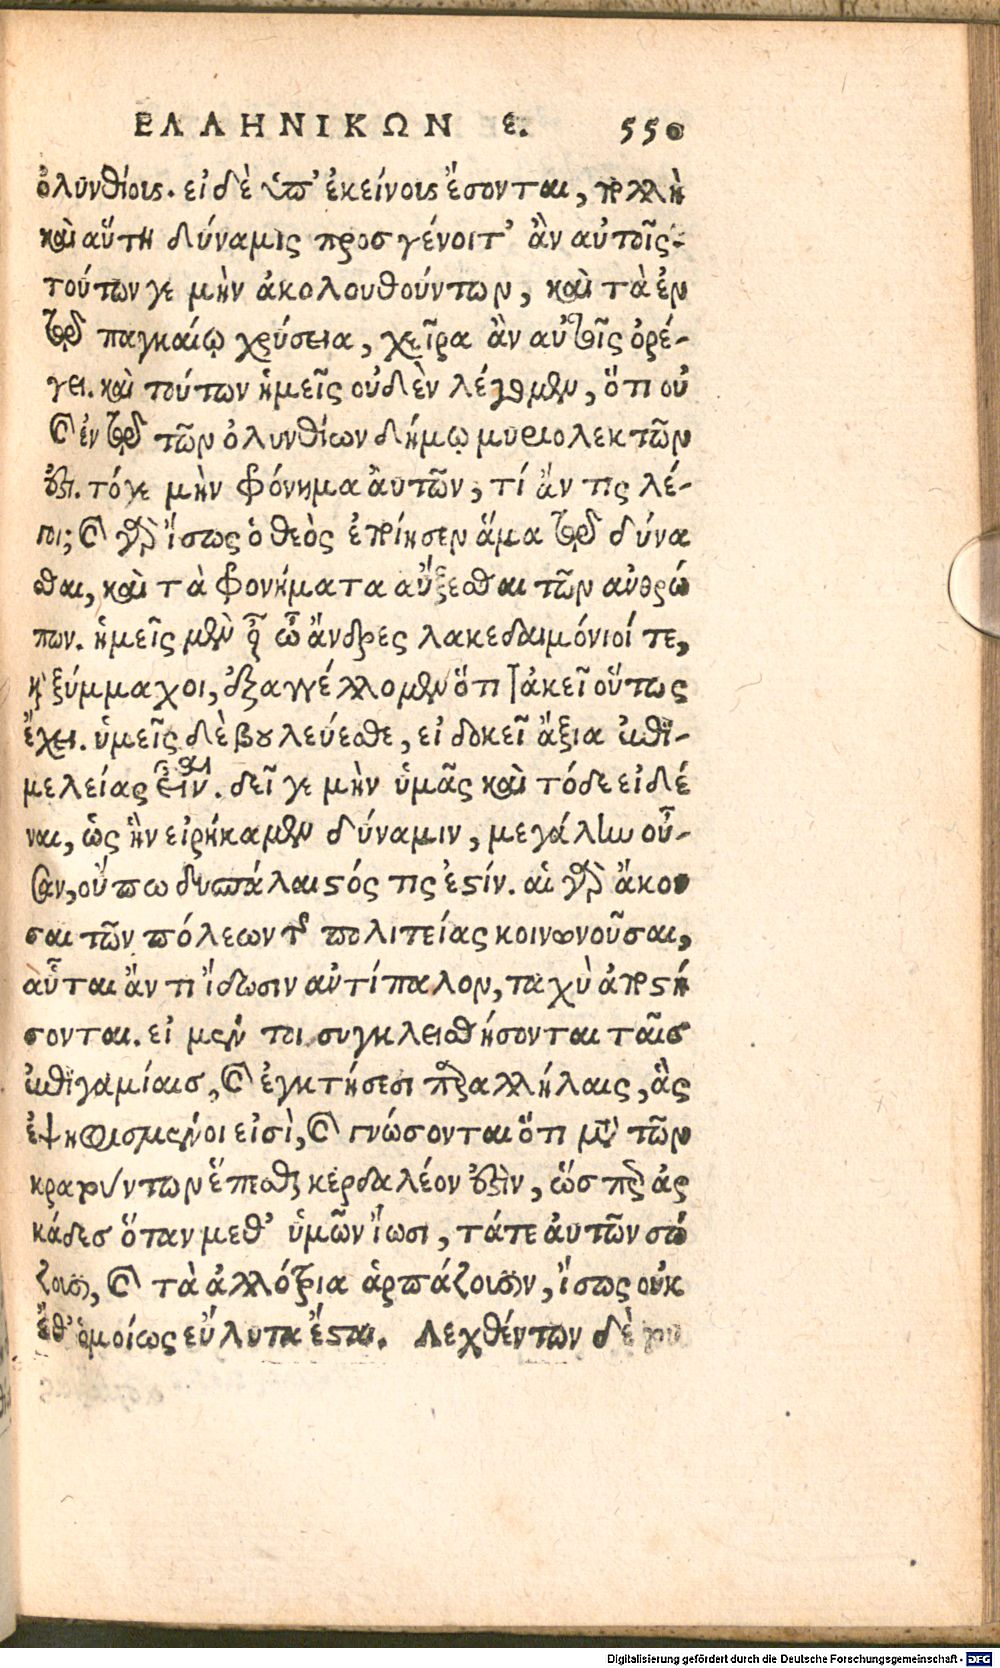 ΕΛΛΗΝΙΚΩΝ ε. 550
ὀλυνθίοις. εἰ δὲ ὑπ' ἐκείνοις ἔσονται, πολλὴ
καὶ αὕτη δύναμις προσγένοιτ' ἂν αὐτοῖς.
τούτων γε μὴν ἀκολουθούντων, καὶ τὰ ἐν
τῷ παγκαίῳ χρύσεια, χεῖρα ἂν αὐτοῖς ὀρέ-
γει. καὶ τούτων ἡμεῖς οὐδὲν λέγομεν, ὅτι οὐ
καὶ ἐν τῷ τῶν ὀλυνθίων δήμῳ μυριολεκτῶν
ἐστι. τόγε μὴν φρόνημα αὐτῶν, τί ἄν τις λέ-
γοι; καὶ γὰρ ἴσως ὁ θεὸς ἐποίησεν ἅμα τῷ δύνα
σθαι, καὶ τὰ φρονήματα αὔξεσθαι τῶν ἀνθρώ
πων. ἡμεῖς μὲν οὖν ὦ ἄνδρες λακεδαιμόνιοί τε,
καὶ ξύμμαχοι, ἐξαγγέλλομεν ὅτι τἀκεῖ οὕτως
ἔχει. ὑμεῖς δὲ βουλεύεσθε, εἰ δοκεῖ ἄξια ἐπι-
μελείας εἶναι. δεῖ γε μὴν ὑμᾶς καὶ τόδε εἰδέ
ναι, ὡς ἣν εἰρήκαμεν δύναμιν, μεγάλην οὖ-
σαν, οὔπω δυσπάλαιστός τις ἐστίν. αἱ γὰρ ἄκου
σαι τῶν πόλεων τῆς πολιτείας κοινωνοῦσαι,
αὗται ἄν τι ἴδωσιν ἀντίπαλον, ταχὺ ἀποστή
σονται. εἰ μέντοι συγκλεισθήσονται ταῖς
ἐπιγαμίαις, καὶ ἐγκτήσεσι παρ' ἀλλήλαις, ἃς
ἐψηφισμένοι εἰσὶ, καὶ γνώσονται ὅτι μετὰ τῶν
κρατούντων ἕπεσθαι κερδαλέον ἐστὶν, ὥσπερ ἀρ
κάδες ὅταν μεθ' ὑμῶν ἴωσι, τάτε αὐτῶν σώ
ζουσι, καὶ τὰ ἀλλότρια ἁρπάζουσιν, ἴσως οὐκ
ἔθ' ὁμοίως εὔλυτα ἔσται. Λεχθέντων δὲ του
Digitalisierung gefördert durch die Deutsche Forschungsgemeinschaft - DFG